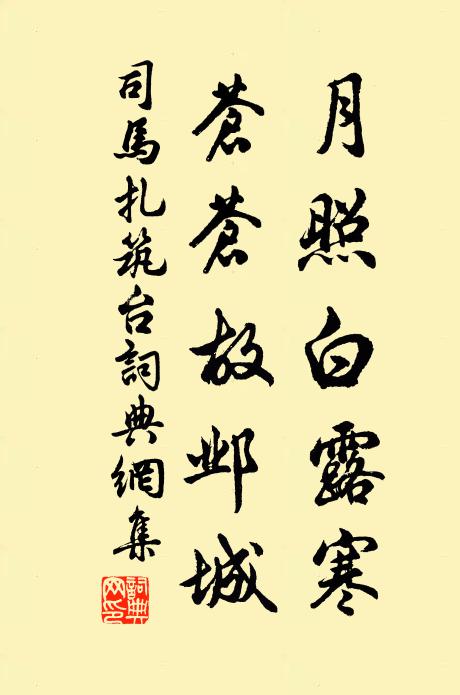 月照白露寒
蒼蒼故邺城
司馬扎筑台詞典網集
詞典網印